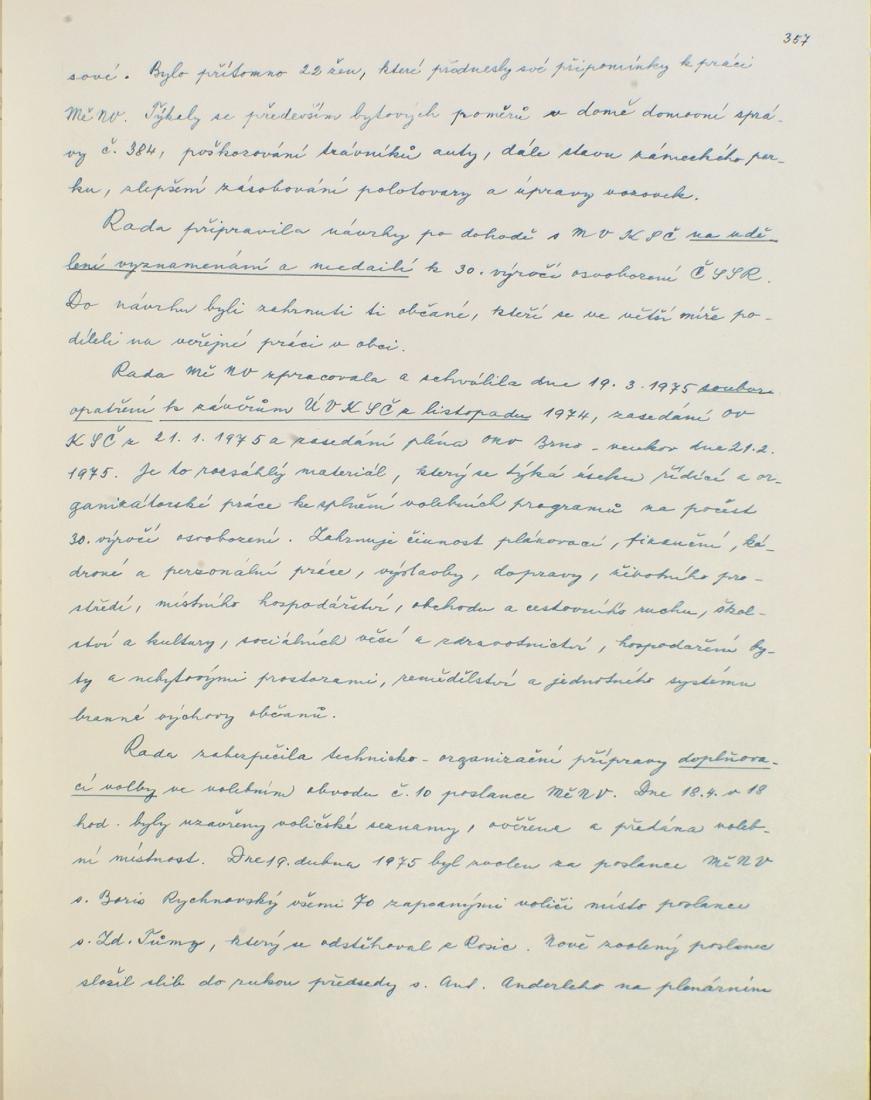 357
sové. Bylo přítomno 22 žen, které přednesly své připomínky k práci
MěNV. Týkaly se především bytových poměrů v domě domovní sprá-
vy č. 384, poškozování trávníků auty, dále stavu zámeckého par-
ku, zlepšení zásobování polotovary a úpravy vozovek.
Rada připravila návrhy po dohodě s MV KSČ na udě-
lení vyznamenání a medailí k 30. výročí osvobození ČSSR.
Do návrhu byli zahrnuti ti občané, kteří se ve větší míře po-
díleli na veřejné práci v obci.
Rada Mě NV zpracovala a schválila dne 19. 3. 1975 soubor
opatření k závěrům ÚV KSČ z listopadu 1974, zasedání OV
KSČ z 21. 1. 1975 a zasedání pléna ONV Brno - venkov dne 21. 2.
1975. Je to rozsáhlý materiál, který se týká úseku řídící a or-
ganizátorské práce ke splnění volebních programů na počest
30. výročí osvobození. Zahrnuje činnost plánovací, finanční, ká-
drové a personální práce, výstavby, dopravy, životního pro-
středí, místního hospodářství, obchodu a cestovního ruchu, škol-
ství a kultury, sociálních věcí a zdravotnictví, hospodaření by-
ty a nebytovými prostorami, zemědělství a jednotného systému
branné výchovy občanů.
Rada zabezpečila technicko - organizační přípravy doplňova-
cí volby ve volebním obvodu č. 10 poslance MěNV. Dne 18. 4. v 18
hod. byly uzavřeny voličské seznamy, ověřena a předána voleb-
ní místnost. Dne 19. dubna 1975 byl zvolen za poslance MěNV
s. Boris Rychnovský všemi 70 zapsanými voliči místo poslance
s. Zd. Tůmy, který se odstěhoval z Rosic. Nově zvolený poslanec
složil slib do rukou předsedy s. Ant. Anderleho na plenárním